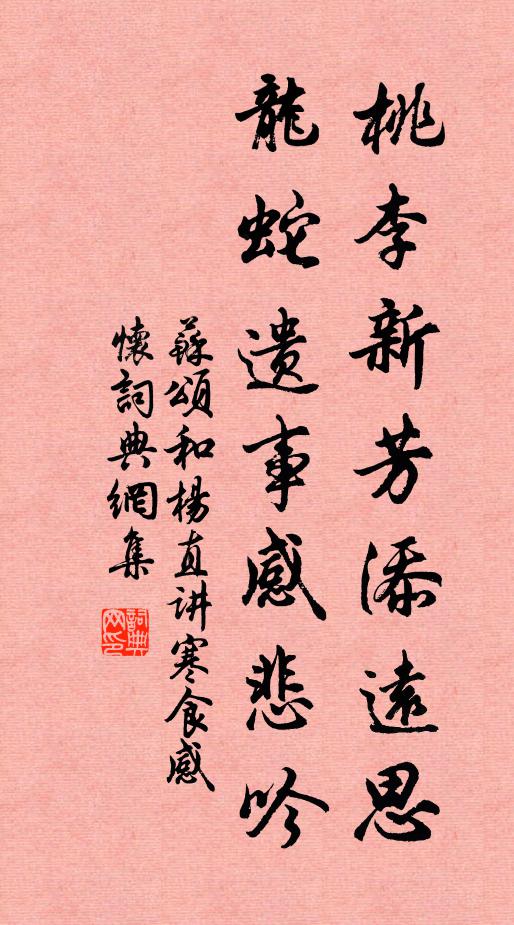 桃李新芳添遠思
龍蛇遺事感悲吟
蘇頌和楊直讲寒食感
懷詞典網集
詞典
网印